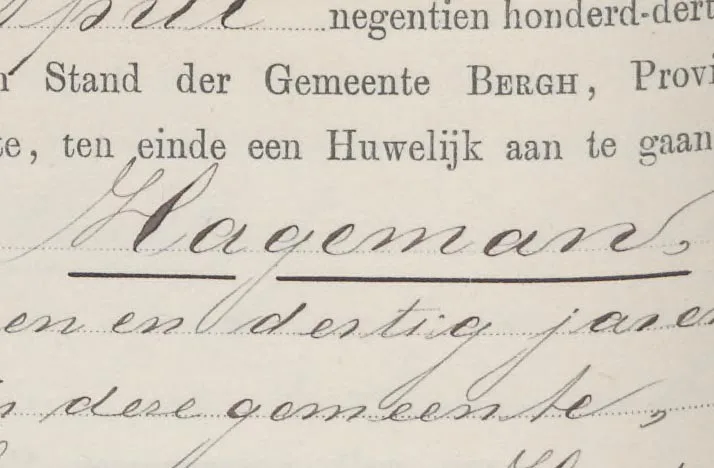 april negentien honderd-dert
Stand der Gemeente BERGH, Provi
te, ten einde een Huwelijk aan te gaan
Hageman,
en en dertig jaren
deze gemeente,